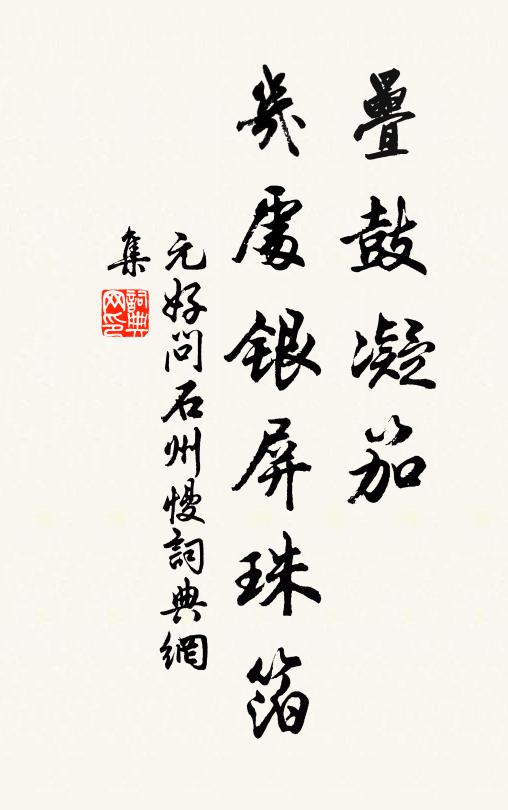 疊鼓凝笳
幾處銀屏珠箔
元好問石州慢詞典網
集
詞典
网印